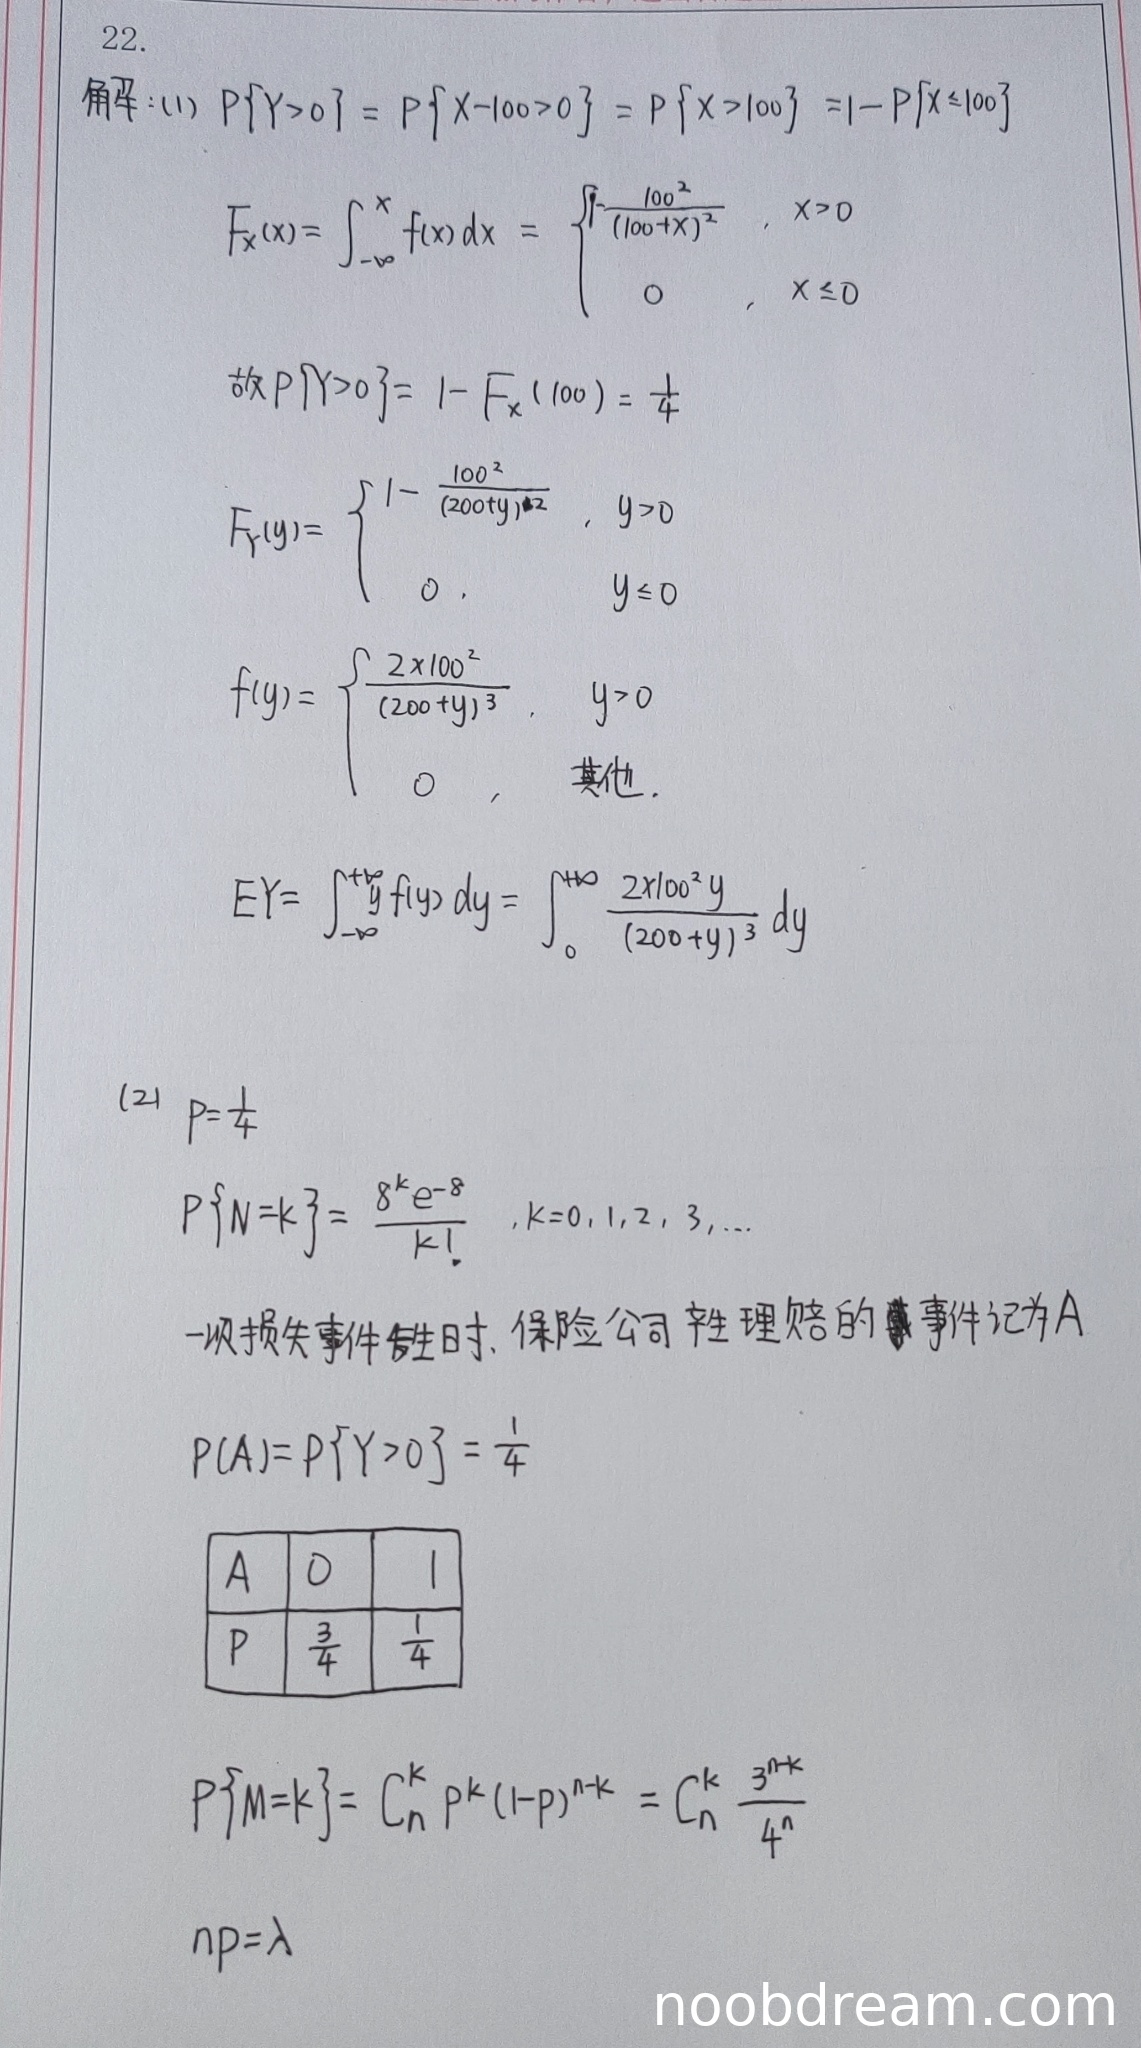 22.
解:(1) P{Y>0} = P{X-100>0} = P{X>100} =1-P{X≤100}
F_X(x)= ∫_{-∞}^{x} f(x)dx = { 1-100²/(100+x)² , x>0
0 , x≤0
故P{Y>0}= 1-F_X(100)= 1/4
F_Y(y)= { 1- 100²/(200+y)² , y>0
0 , y≤0
f(y)= { 2×100²/(200+y)³ , y>0
0 , 其他.
EY= ∫_{-∞}^{+∞} y f(y) dy= ∫_{0}^{+∞} 2×100²y/(200+y)³ dy
(2) P=1/4
P{N=k}= 8^k e^{-8}/k! , k=0,1,2,3,...
一次损失事件发生时,保险公司产生理赔的事件记为A
P(A)=P{Y>0}= 1/4
A 0 1
P 3/4 1/4
P{M=k}= C_n^k P^k (1-P)^{n-k} = C_n^k 3^{n-k}/4^n
np=λ
noobdream.com